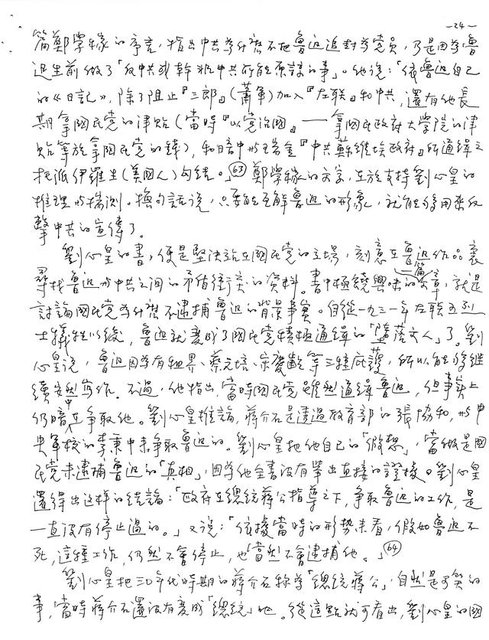 —24—
篇鄭學稼的序言，指出中共為什麼不把魯迅追封為黨員，乃是因為魯
迅生前做了「反中共或幹非中共所能原諒的事」。他說：「依魯迅自己
的《日記》，除了阻止『三郎』（蕭軍）加入『左聯』和中共，還有他長
期拿國民黨的津貼（當時『以黨治國』——拿國民政府大學院的津
貼等於拿國民黨的錢），和暗中與瑞金『中共蘇維埃政府』所通緝之
托派伊羅生（美國人）勾結。」(63) 鄭學稼的文字，在於支持劉心皇的
推理與揣測。換句話說，只要能瓦解魯迅的形象，就能發揮要反
擊中共的宣傳了。
劉心皇的書，便是堅決站在國民黨的立場，刻意在魯迅作品裏
尋找魯迅與中共之間的矛盾衝突的資料。書中極饒興味的一篇文章，就是
討論國民黨為什麼不逮捕魯迅的背景事實。自從一九三一年左聯五烈
士犧牲以後，魯迅就變成了國民黨積極通緝的「墮落文人」了。劉
心皇說，魯迅因為有租界、蔡元培、宗教數等三種庇護，所以能夠繼
續安然寫作。不過，他指出，當時國民黨雖然通緝魯迅，但事實上
仍暗在爭取他。劉心皇推論，蔣介石是透過教育部的張協和，與中
央軍校的李秉中來爭取魯迅的。劉心皇把他自己的「假想」，當做是國
民黨未逮捕魯迅的「真相」，因為他全書沒有舉出直接的證據。劉心皇
還得出這樣的結論：「政府在總統蔣公指導之下，爭取魯迅的工作，是
一直沒有停止過的。」又說：「依據當時的形勢來看，假如魯迅不
死，這種工作，仍然不會停止，也當然不會逮捕他。」(64)
劉心皇把三〇年代時期的蔣介石稱為「總統蔣公」，自然是可笑的
事，當時蔣介石還沒有變成「總統」也。從這點就可看出，劉心皇的國